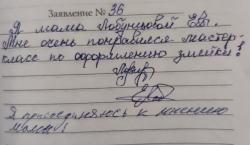 Заявление № 36
Я мама Лобунцовой ЕВ.
Мне очень понравился мастер-
класс по оформлению заметки!
Я присоединяюсь к мнению
мамы!